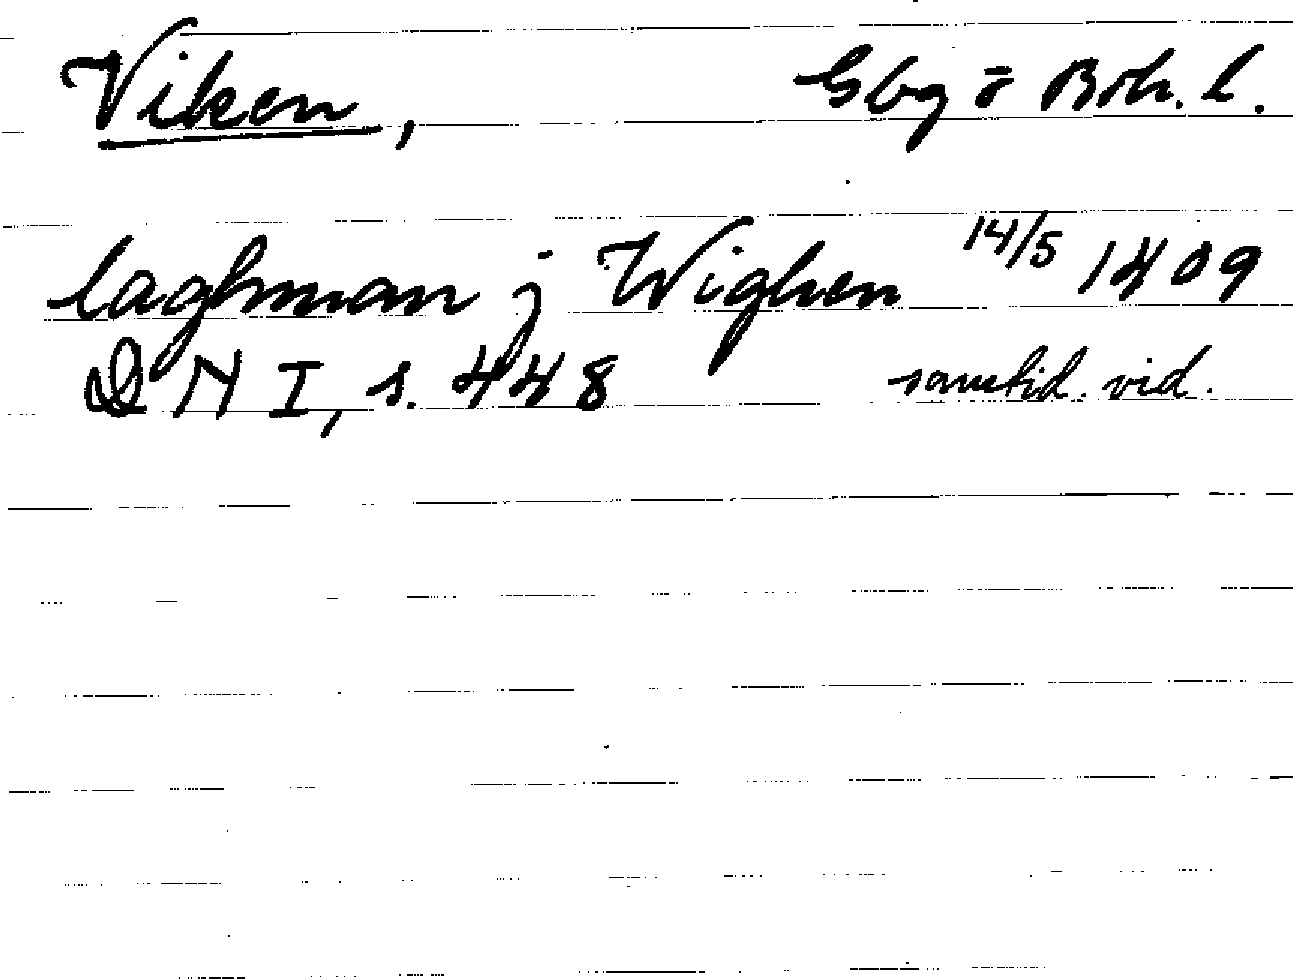 Viken, Gbg o Boh. l.
laghman j Wighen 14/5 1409
DN I, s. 448 samtid. vid.